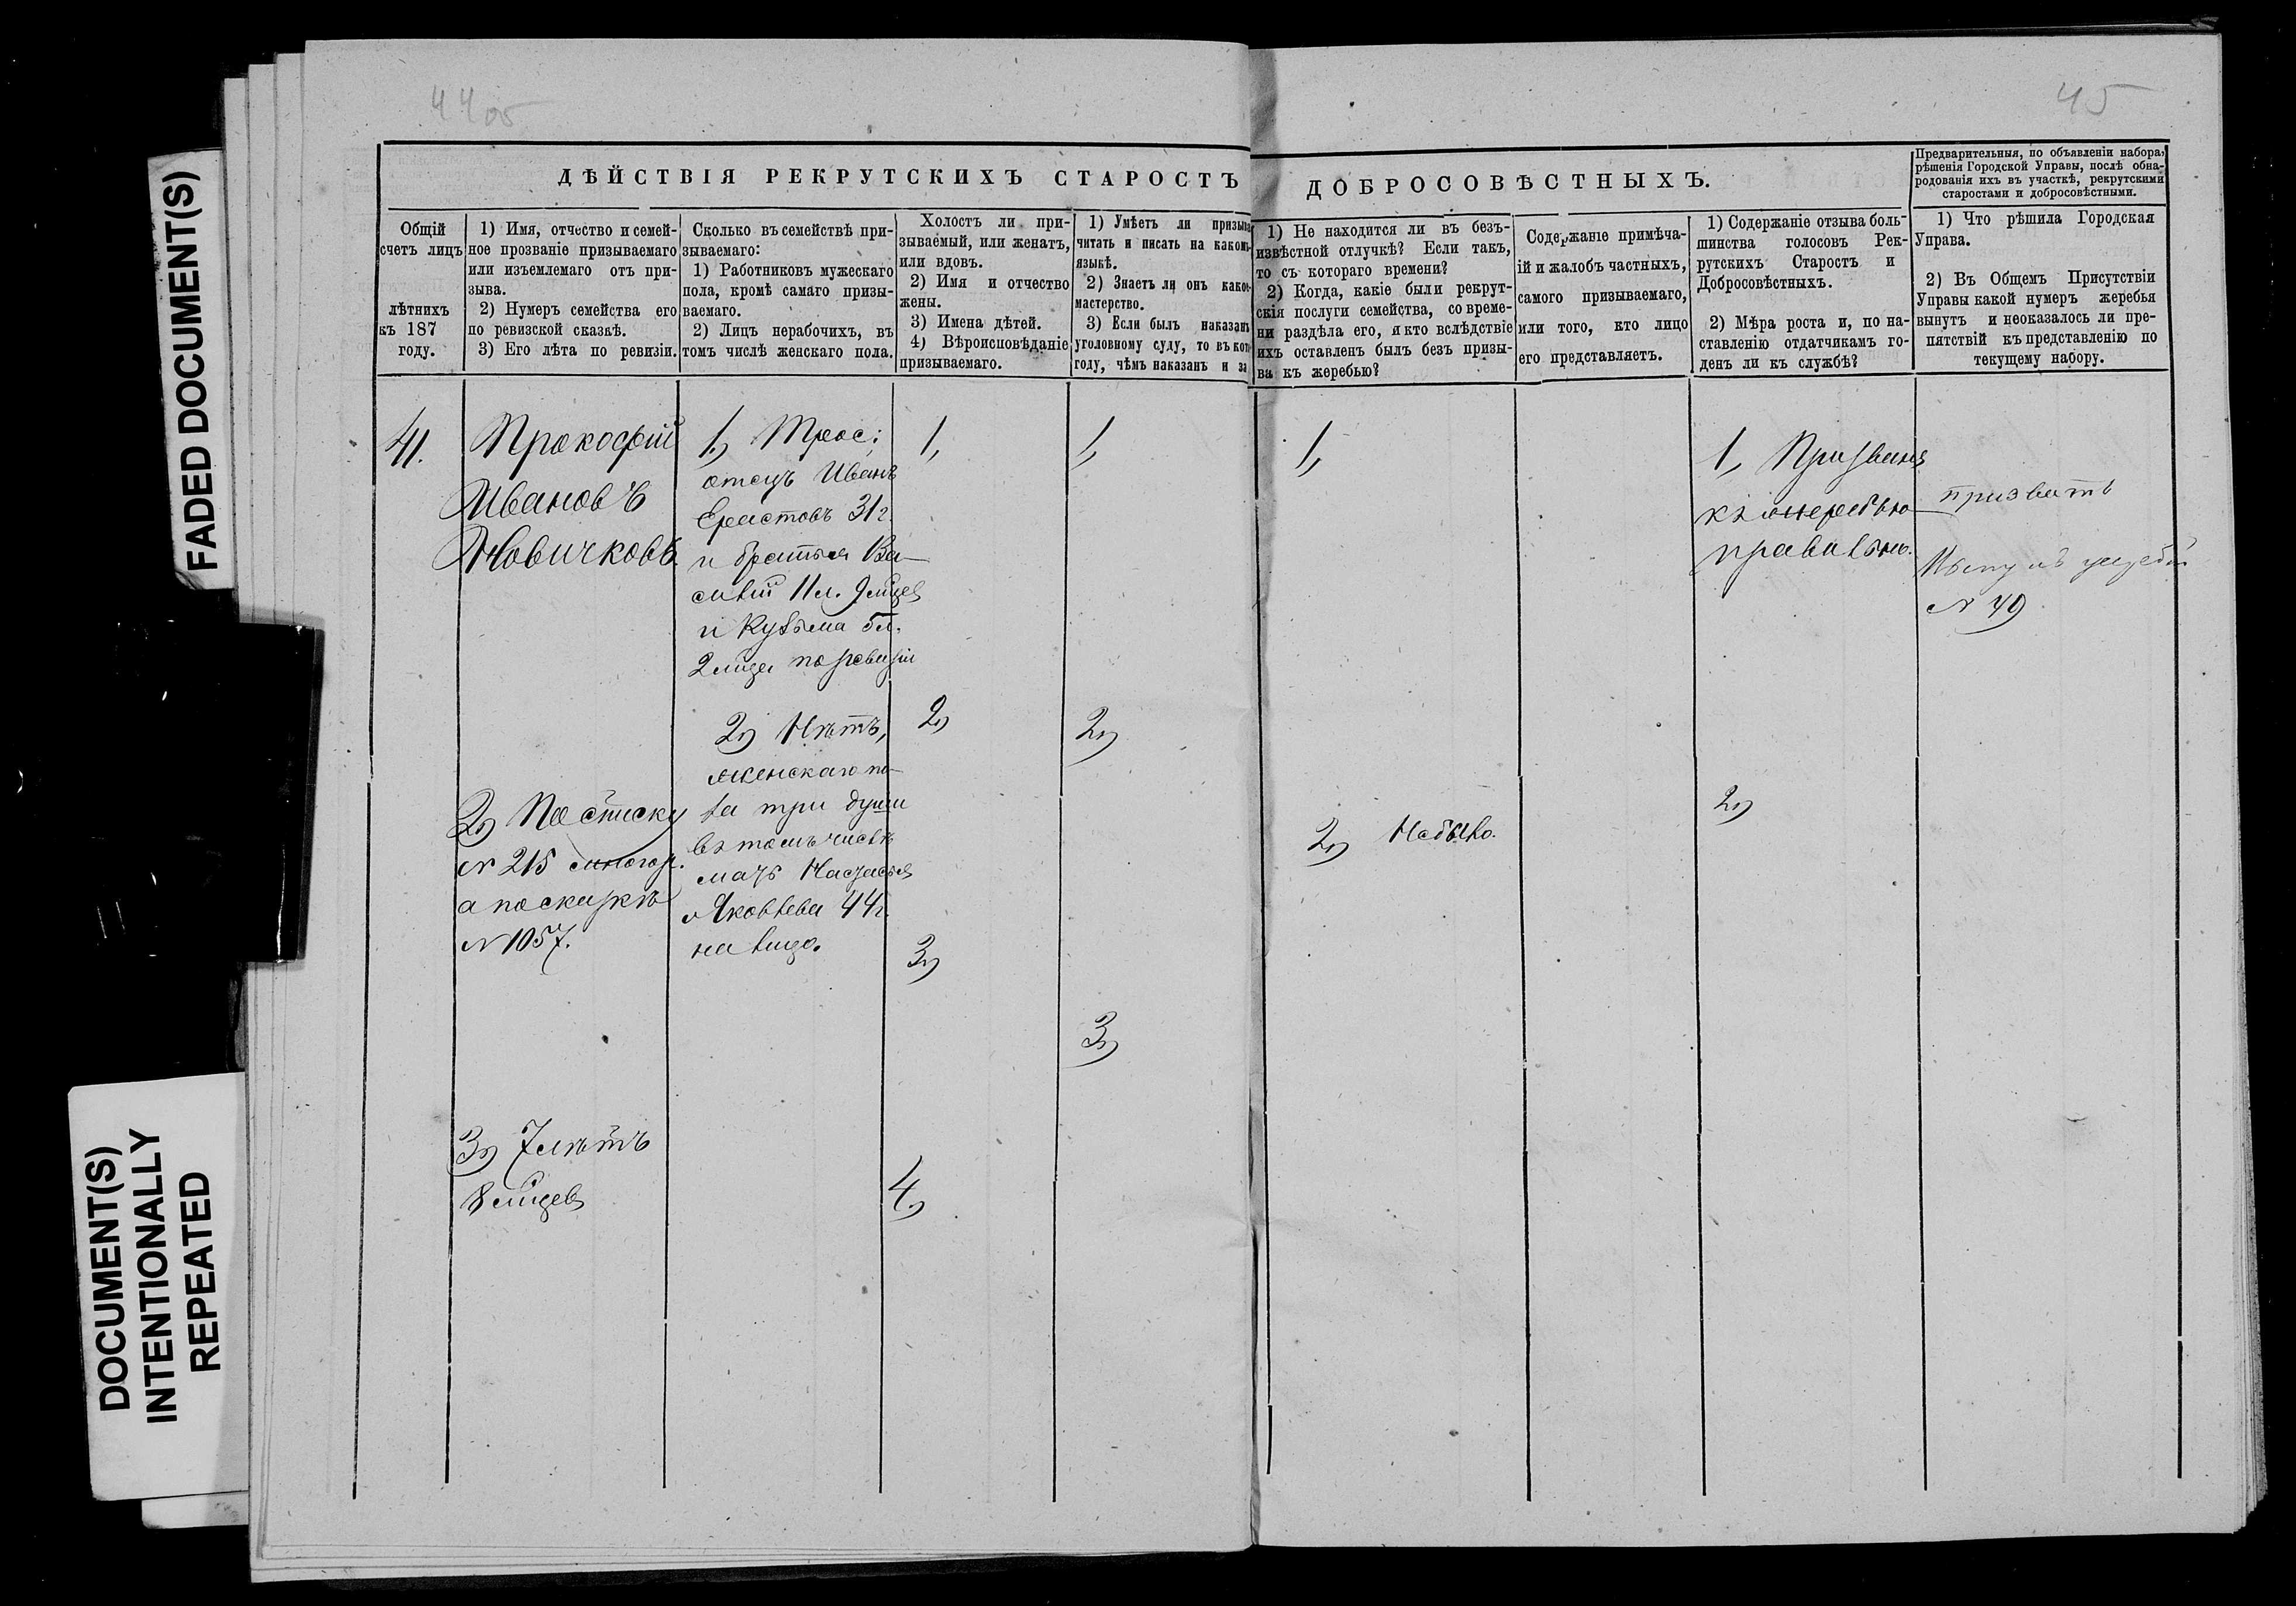 FADED DOCUMENT(S)
DOCUMENT(S)
INTENTIONALLY
REPEATED
44об
45
ДѢЙСТВІЯ РЕКРУТСКИХЪ СТАРОСТЪ
ДОБРОСОВѢСТНЫХЪ.
Предварительныя, по объявленіи набора,
рѣшенія Городской Управы, послѣ обна-
родованія ихъ въ участкѣ, рекрутскими
старостами и добросовѣстными.
Общій
счетъ лицъ
лѣтнихъ
къ 187
году.
1) Имя, отчество и семей-
ное прозваніе призываемаго
или изъемлемаго отъ при-
зыва.
2) Нумеръ семейства его
по ревизской сказкѣ.
3) Его лѣта по ревизіи.
Сколько въ семействѣ при-
зываемаго:
1) Работниковъ мужескаго
пола, кромѣ самаго призы-
ваемаго.
2) Лицъ нерабочихъ, въ
томъ числѣ женскаго пола.
Холостъ ли при-
зываемый, или женатъ,
или вдовъ.
2) Имя и отчество
жены.
3) Имена дѣтей.
4) Вѣроисповѣданіе
призываемаго.
1) Умѣетъ ли призыва
читать и писать на какомъ
языкѣ.
2) Знаетъ ли онъ какое
мастерство.
3) Если былъ наказанъ
уголовному суду, то въ кот
году, чѣмъ наказанъ и за
1) Не находится ли въ безъ-
извѣстной отлучкѣ? Если такъ,
то съ котораго времени?
2) Когда, какіе были рекрут-
скія послуги семейства, со време-
ни раздѣла его, и кто вслѣдствіе
ихъ оставленъ былъ безъ призы-
ва къ жеребью?
Содержаніе примѣча-
ій и жалобъ частныхъ,
самого призываемаго,
или того, кто лицо
его представляетъ.
1) Содержаніе отзыва боль-
шинства голосовъ Рек-
рутскихъ Старостъ и
Добросовѣстныхъ.
2) Мѣра роста и, по на-
ставленію отдатчикамъ го-
денъ ли къ службѣ?
1) Что рѣшила Городская
Управа.
2) Въ Общемъ Присутствіи
Управы какой нумеръ жеребья
вынутъ и неоказалось ли пре-
пятствій къ представленію по
текущему набору.
41.
Прокофій
Ивановъ
Новичковъ.
2) По списку
N 215
а по сказкѣ
N 1057.
3) 7 лѣтъ
8 мѣцев
1) Трое:
отецъ Иванъ
Ерастовъ 31 г.
и братья Ва-
силій 11 л. 9 мѣцев
и Кузьма 5 л.
2 мѣца по ревизіи
2) Нѣтъ,
женскаго по-
ла три души
въ томъ числѣ
мать Настасья
Яковлева 44 г.
на лицо.
1,
2)
3)
4)
1,
2)
3)
1,
2) Небыло.
1, Призванъ
къ жеребью
правильно.
2)
призвать
Вынулъ жребій
N 49